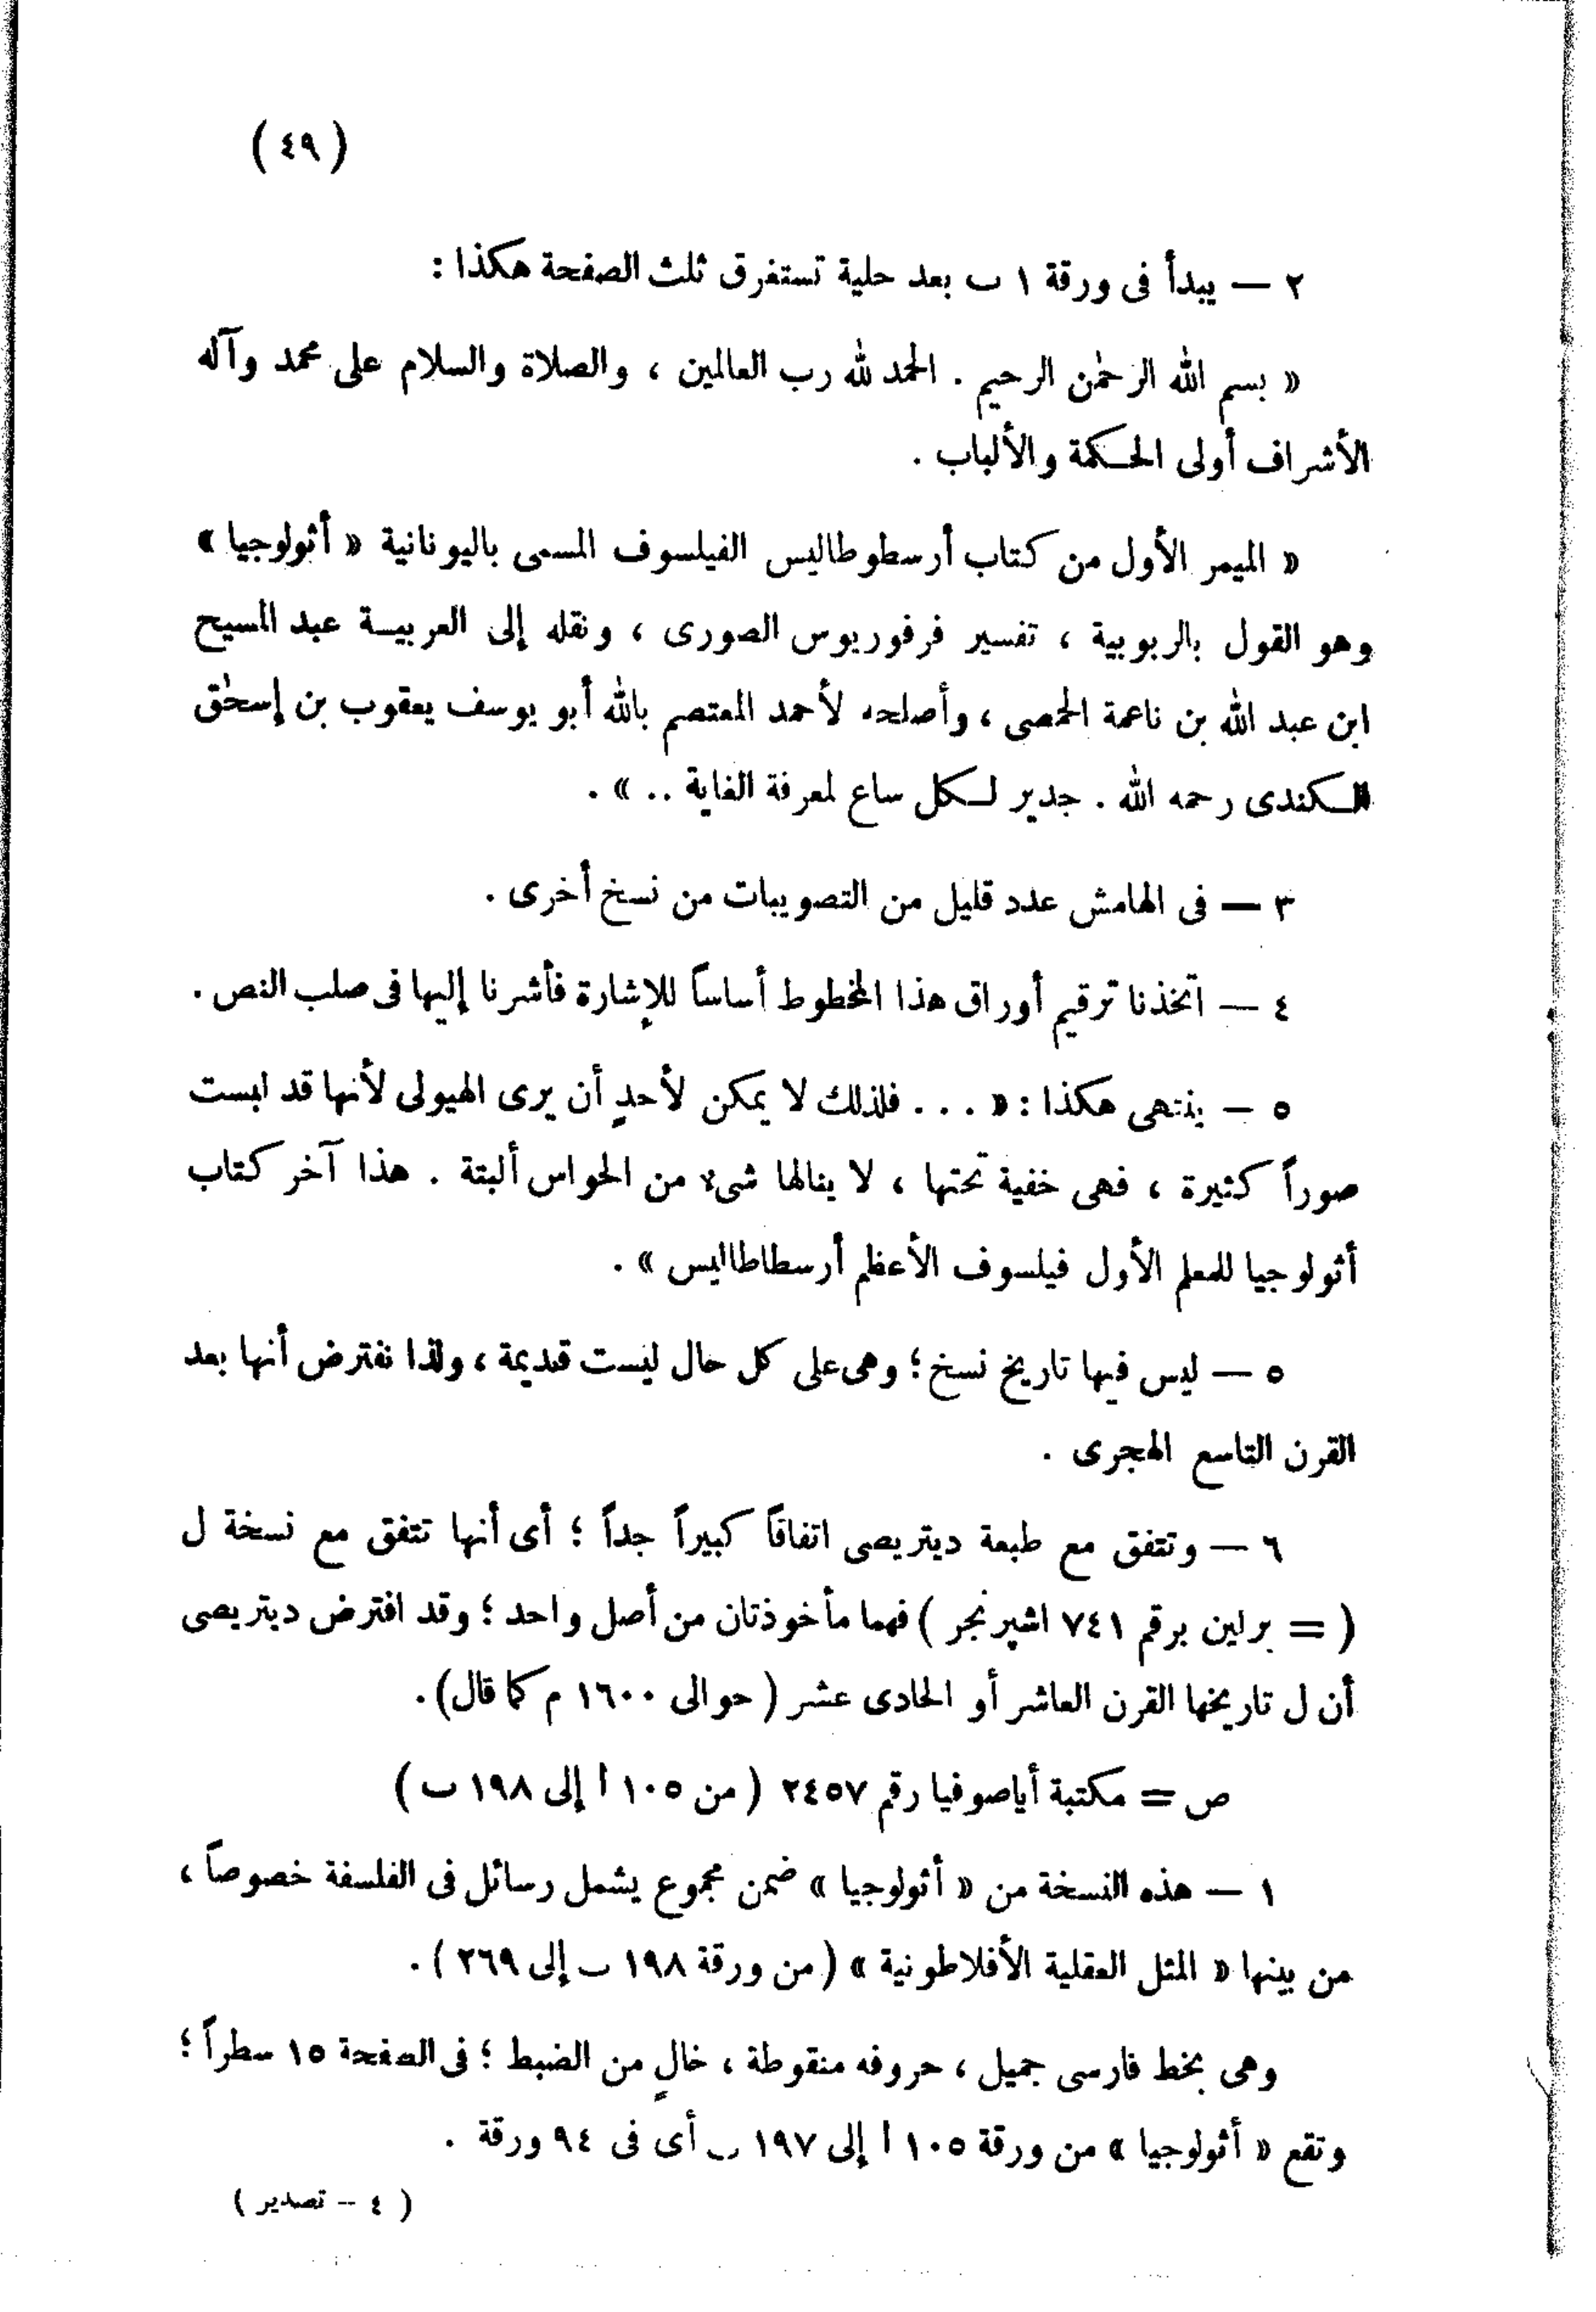 ( ٤٩ )
٢ — يبدأ فى ورقة ١ ب بعد حلية تستغرق ثلث الصفحة هكذا :
« بسم الله الرحمٰن الرحيم . الحمد لله رب العالمين ، والصلاة والسلام على محمد وآله
الأشراف أولى الحكمة والألباب .
« الميمر الأول من كتاب أرسطوطاليس الفيلسوف المسمى باليونانية « أثولوجيا »
وهو القول بالربوبية ، تفسير فرفوريوس الصورى ، ونقله إلى العربية عبد المسيح
ابن عبد الله بن ناعمة الحمصى ، وأصلحه لأحمد المعتصم بالله أبو يوسف يعقوب بن إسحٰق
الكندى رحمه الله . جدير لكل ساع لمعرفة الغاية .. » .
٣ — فى الهامش عدد قليل من التصويبات من نسخ أخرى .
٤ — اتخذنا ترقيم أوراق هذا المخطوط أساساً للإشارة فأشرنا إليها فى صلب النص .
٥ — ينتهى هكذا : « . . . فلذلك لا يمكن لأحدٍ أن يرى الهيولى لأنها قد لبست
صوراً كثيرة ، فهى خفية تحتها ، لا ينالها شىء من الحواس ألبتة . هذا آخر كتاب
أثولوجيا للمعلم الأول فيلسوف الأعظم أرسطاطاليس » .
٥ — ليس فيها تاريخ نسخ ؛ وهى على كل حال ليست قديمة ، ولذا نفترض أنها بعد
القرن التاسع الهجرى .
٦ — وتتفق مع طبعة ديتريصى اتفاقاً كبيراً جداً ؛ أى أنها تتفق مع نسخة ل
( = برلين برقم ٧٤١ اشپرنجر ) فهما مأخوذتان من أصل واحد ؛ وقد افترض ديتريصى
أن ل تاريخها القرن العاشر أو الحادى عشر ( حوالى ١٦٠٠ م كما قال ) .
ص = مكتبة أياصوفيا رقم ٢٤٥٧ ( من ١٠٥ ا إلى ١٩٨ ب )
١ — هذه النسخة من « أثولوجيا » ضمن مجموع يشمل رسائل فى الفلسفة خصوصاً ،
من بينها « المثل العقلية الأفلاطونية » ( من ورقة ١٩٨ ب إلى ٢٦٩ ) .
وهى بخط فارسى جميل ، حروفه منقوطة ، خالٍ من الضبط ؛ فى الصفحة ١٥ سطراً ؛
وتقع « أثولوجيا » من ورقة ١٠٥ ا إلى ١٩٧ ب أى فى ٩٤ ورقة .
( ٤ – تصدير )